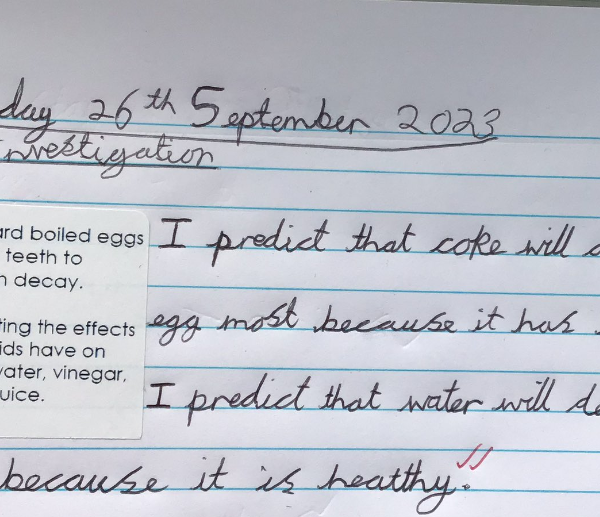 day 26th September 2023
nvestigation
ard boiled eggs
teeth to
n decay.
ting the effects
ids have on
vater, vinegar,
uice.
I predict that coke will d
egg most because it has
I predict that water will de
because it is healthy.